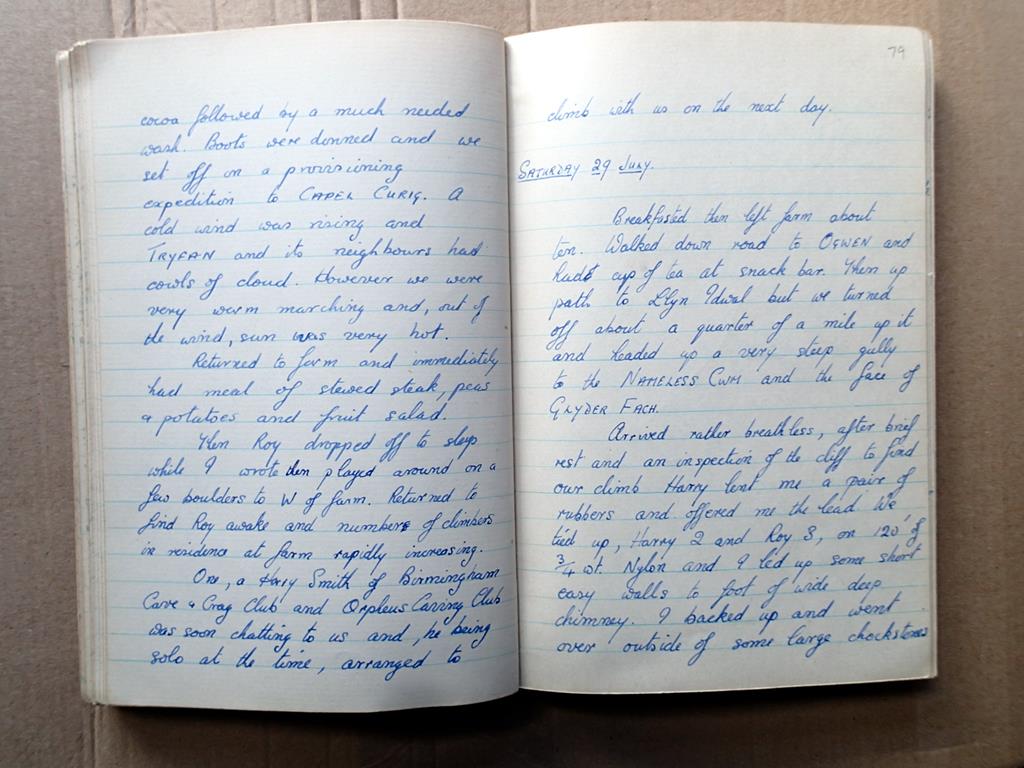 cocoa followed by a much needed
wash. Boots were donned and we
set off on a provisioning
expedition to CAPEL CURIG. A
cold wind was rising and
TRYFAN and its neighbours had
cowls of cloud. However we were
very warm marching and, out of
the wind, sun was very hot.
Returned to farm and immediately
had meal of stewed steak, peas
& potatoes and fruit salad.
Then Roy dropped off to sleep
while I wrote then played around on a
few boulders to W of farm. Returned to
find Roy awake and numbers of climbers
in residence at farm rapidly increasing.
One, a Harry Smith of Birmingham
Cave & Crag Club and Orpheus Caving Club
was soon chatting to us and, he being
solo at the time, arranged to
79
climb with us on the next day.
SATURDAY 29 JULY.
Breakfasted then left farm about
ten. Walked down road to OGWEN and
had cup of tea at snack bar. Then up
path to Llyn Idwal but we turned
off about a quarter of a mile up it
and headed up a very steep gully
to the NAMELESS CWM and the face of
GLYDER FACH.
Arrived rather breathless, after brief
rest and an inspection of the cliff to find
our climb Harry lent me a pair of
rubbers and offered me the lead. We
tied up, Harry 2 and Roy 3, on 120' of
3/4 wt. Nylon and I led up some short
easy walls to foot of wide deep
chimney. I backed up and went
over outside of some large chockstones